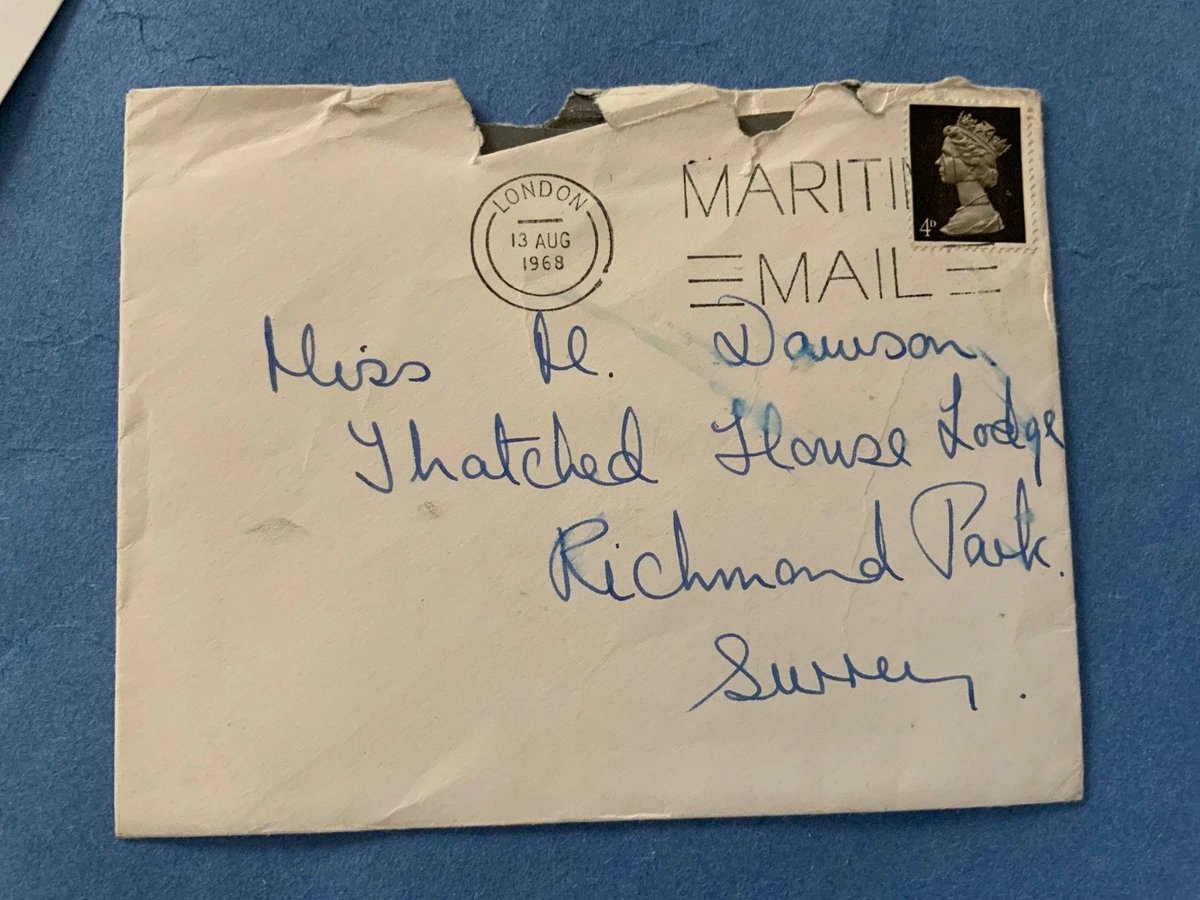 LONDON
13 AUG
1968
MARITI
MAIL
4D
Miss M. Dawson.
Thatched House Lodge
Richmond Park.
Surrey.